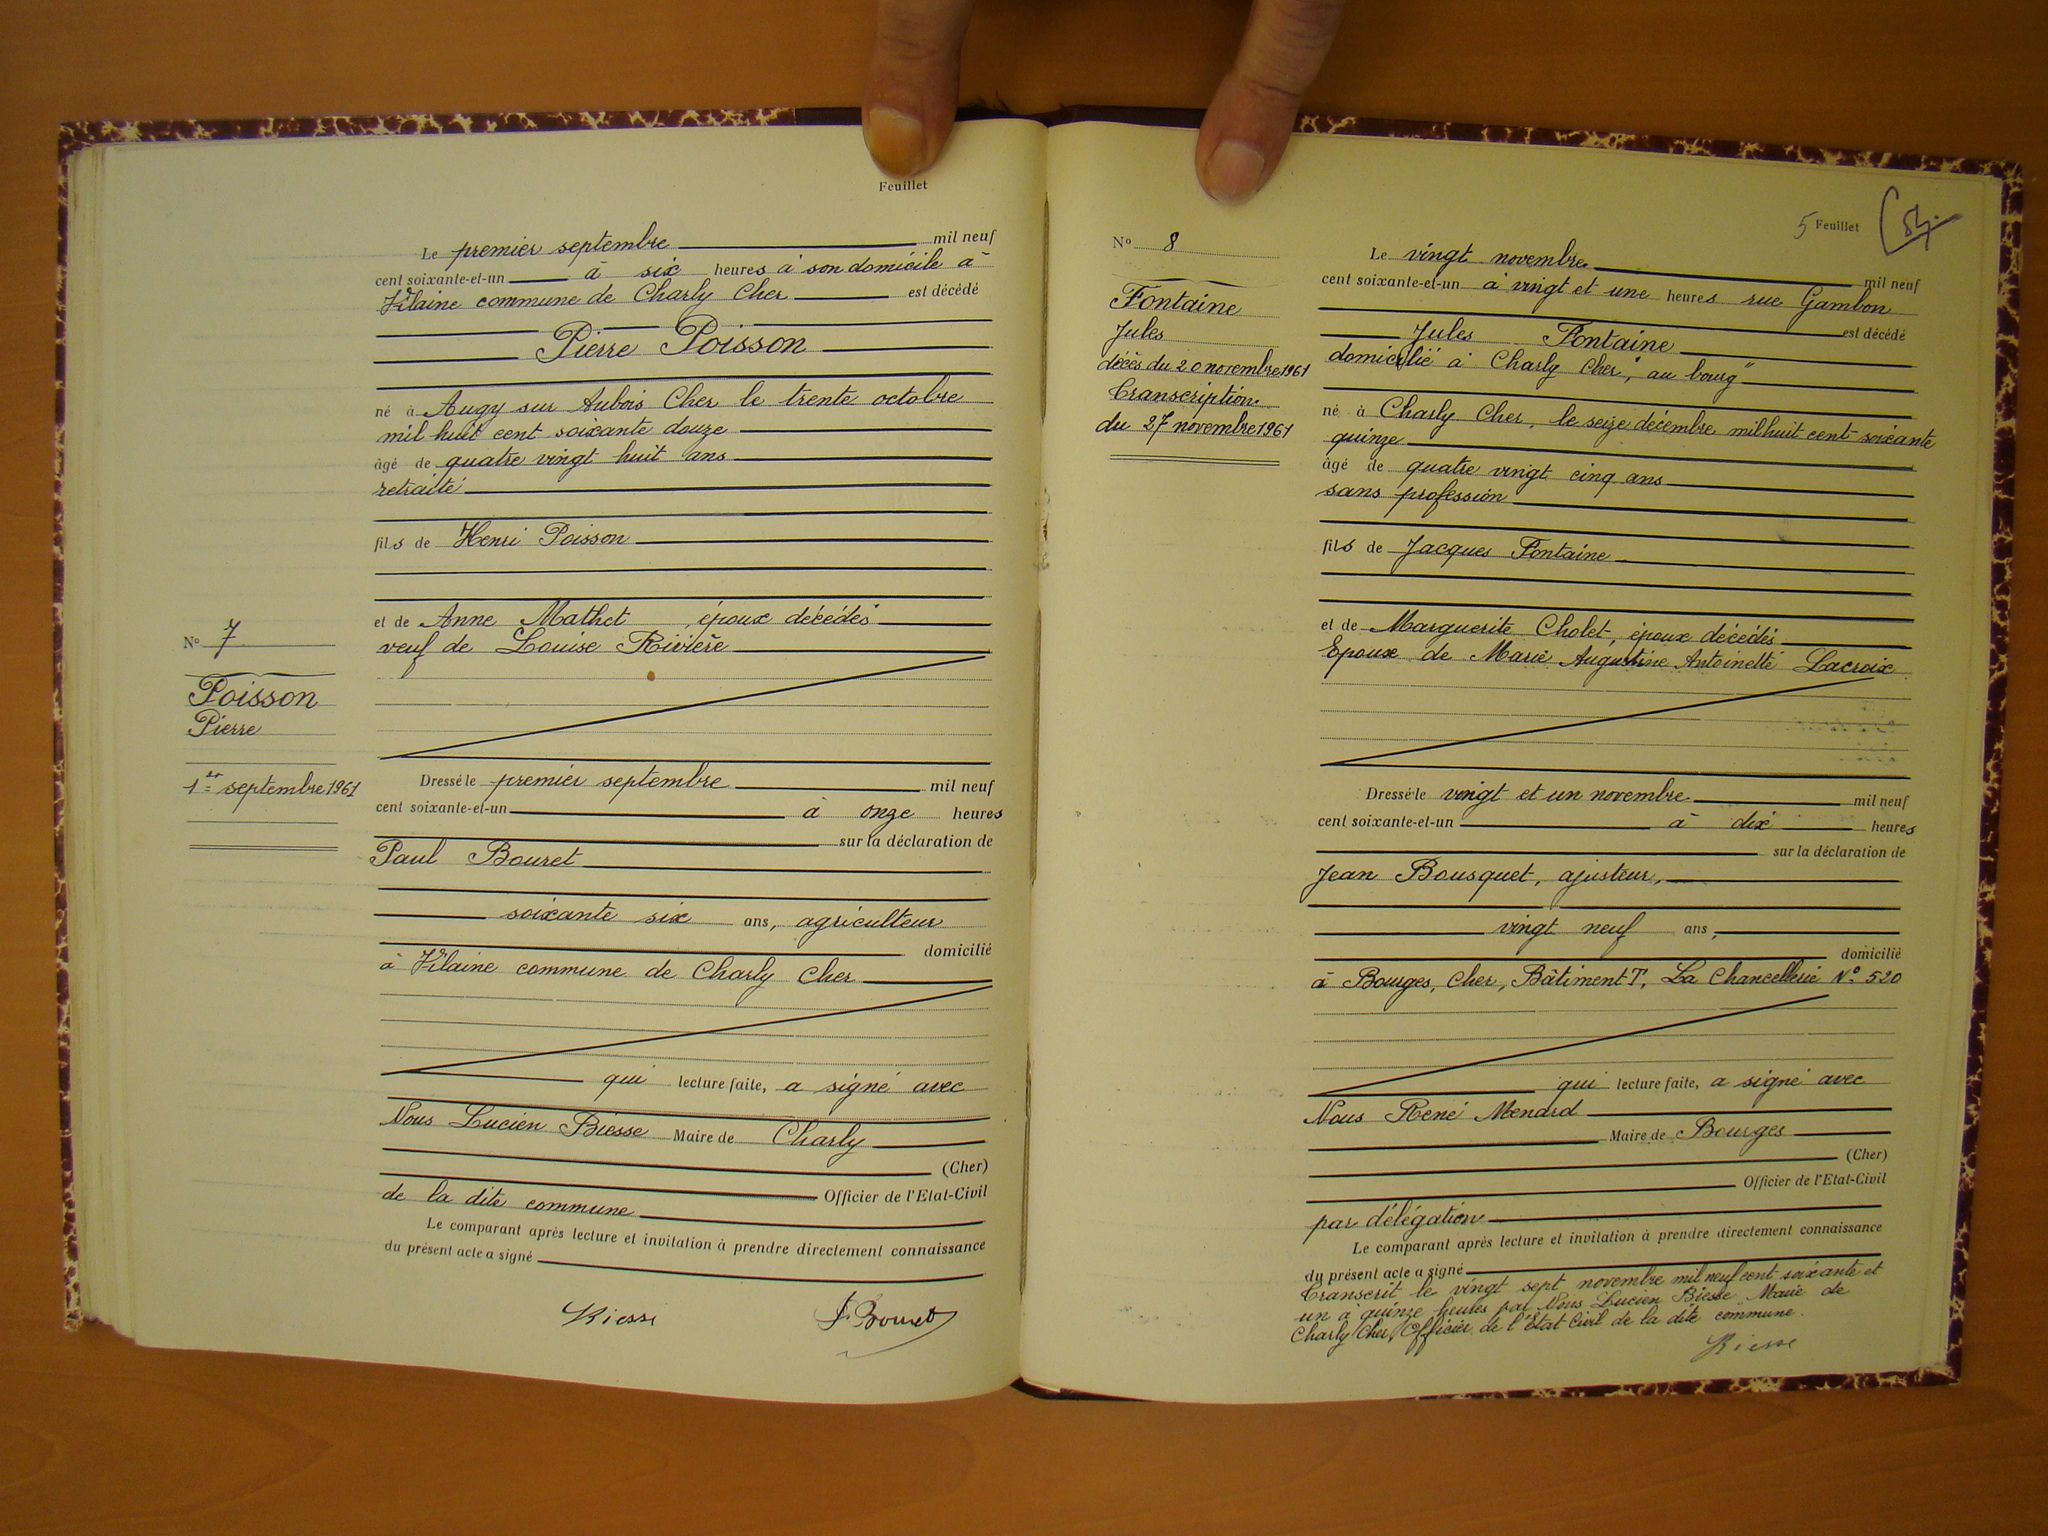 Feuillet
Le premier septembre mil neuf
cent soixante-et-un à six heures à son domicile à
Vilaine commune de Charly Cher est décédé
Pierre Poisson
né à Augy sur Aubois Cher le trente octobre
mil huit cent soixante douze
âgé de quatre vingt huit ans
retraité
fils de Henri Poisson
et de Anne Mathet, époux décédés
veuf de Louise Rivière
N° 7
Poisson
Pierre
1er septembre 1961
Dressé le premier septembre mil neuf
cent soixante-et-un à onze heures
sur la déclaration de
Paul Bouret
soixante six ans, agriculteur
domicilié
à Vilaine commune de Charly Cher
qui lecture faite, a signé avec
Nous Lucien Biesse Maire de Charly
(Cher)
Officier de l'Etat-Civil
de la dite commune
Le comparant après lecture et invitation à prendre directement connaissance
du présent acte a signé
Biesse P. Bouret
5 Feuillet
N° 8
Fontaine
Jules
décès du 20 novembre 1961
Transcription
du 27 novembre 1961
Le vingt novembre mil neuf
cent soixante-et-un à vingt et une heures rue Gambon
est décédé
Jules Fontaine
domicilié à Charly Cher, "au bourg"
né à Charly Cher, le seize décembre mil huit cent soixante
quinze
âgé de quatre vingt cinq ans
sans profession
fils de Jacques Fontaine
et de Marguerite Cholet, époux décédés
Epoux de Marie Augustine Antoinette Lacroix
Dressé le vingt et un novembre mil neuf
cent soixante-et-un à dix heures
sur la déclaration de
Jean Bousquet, ajusteur,
vingt neuf ans,
domicilié
à Bourges, Cher, Bâtiment T, La Chancellerie N° 520
qui lecture faite, a signé avec
Nous René Menard
Maire de Bourges
(Cher)
Officier de l'Etat-Civil
par délégation
Le comparant après lecture et invitation à prendre directement connaissance
du présent acte a signé
Transcrit le vingt sept novembre mil neuf cent soixante et
un à quinze heures par Nous Lucien Biesse Maire de
Charly Cher, Officier de l'Etat Civil de la dite commune.
Biesse